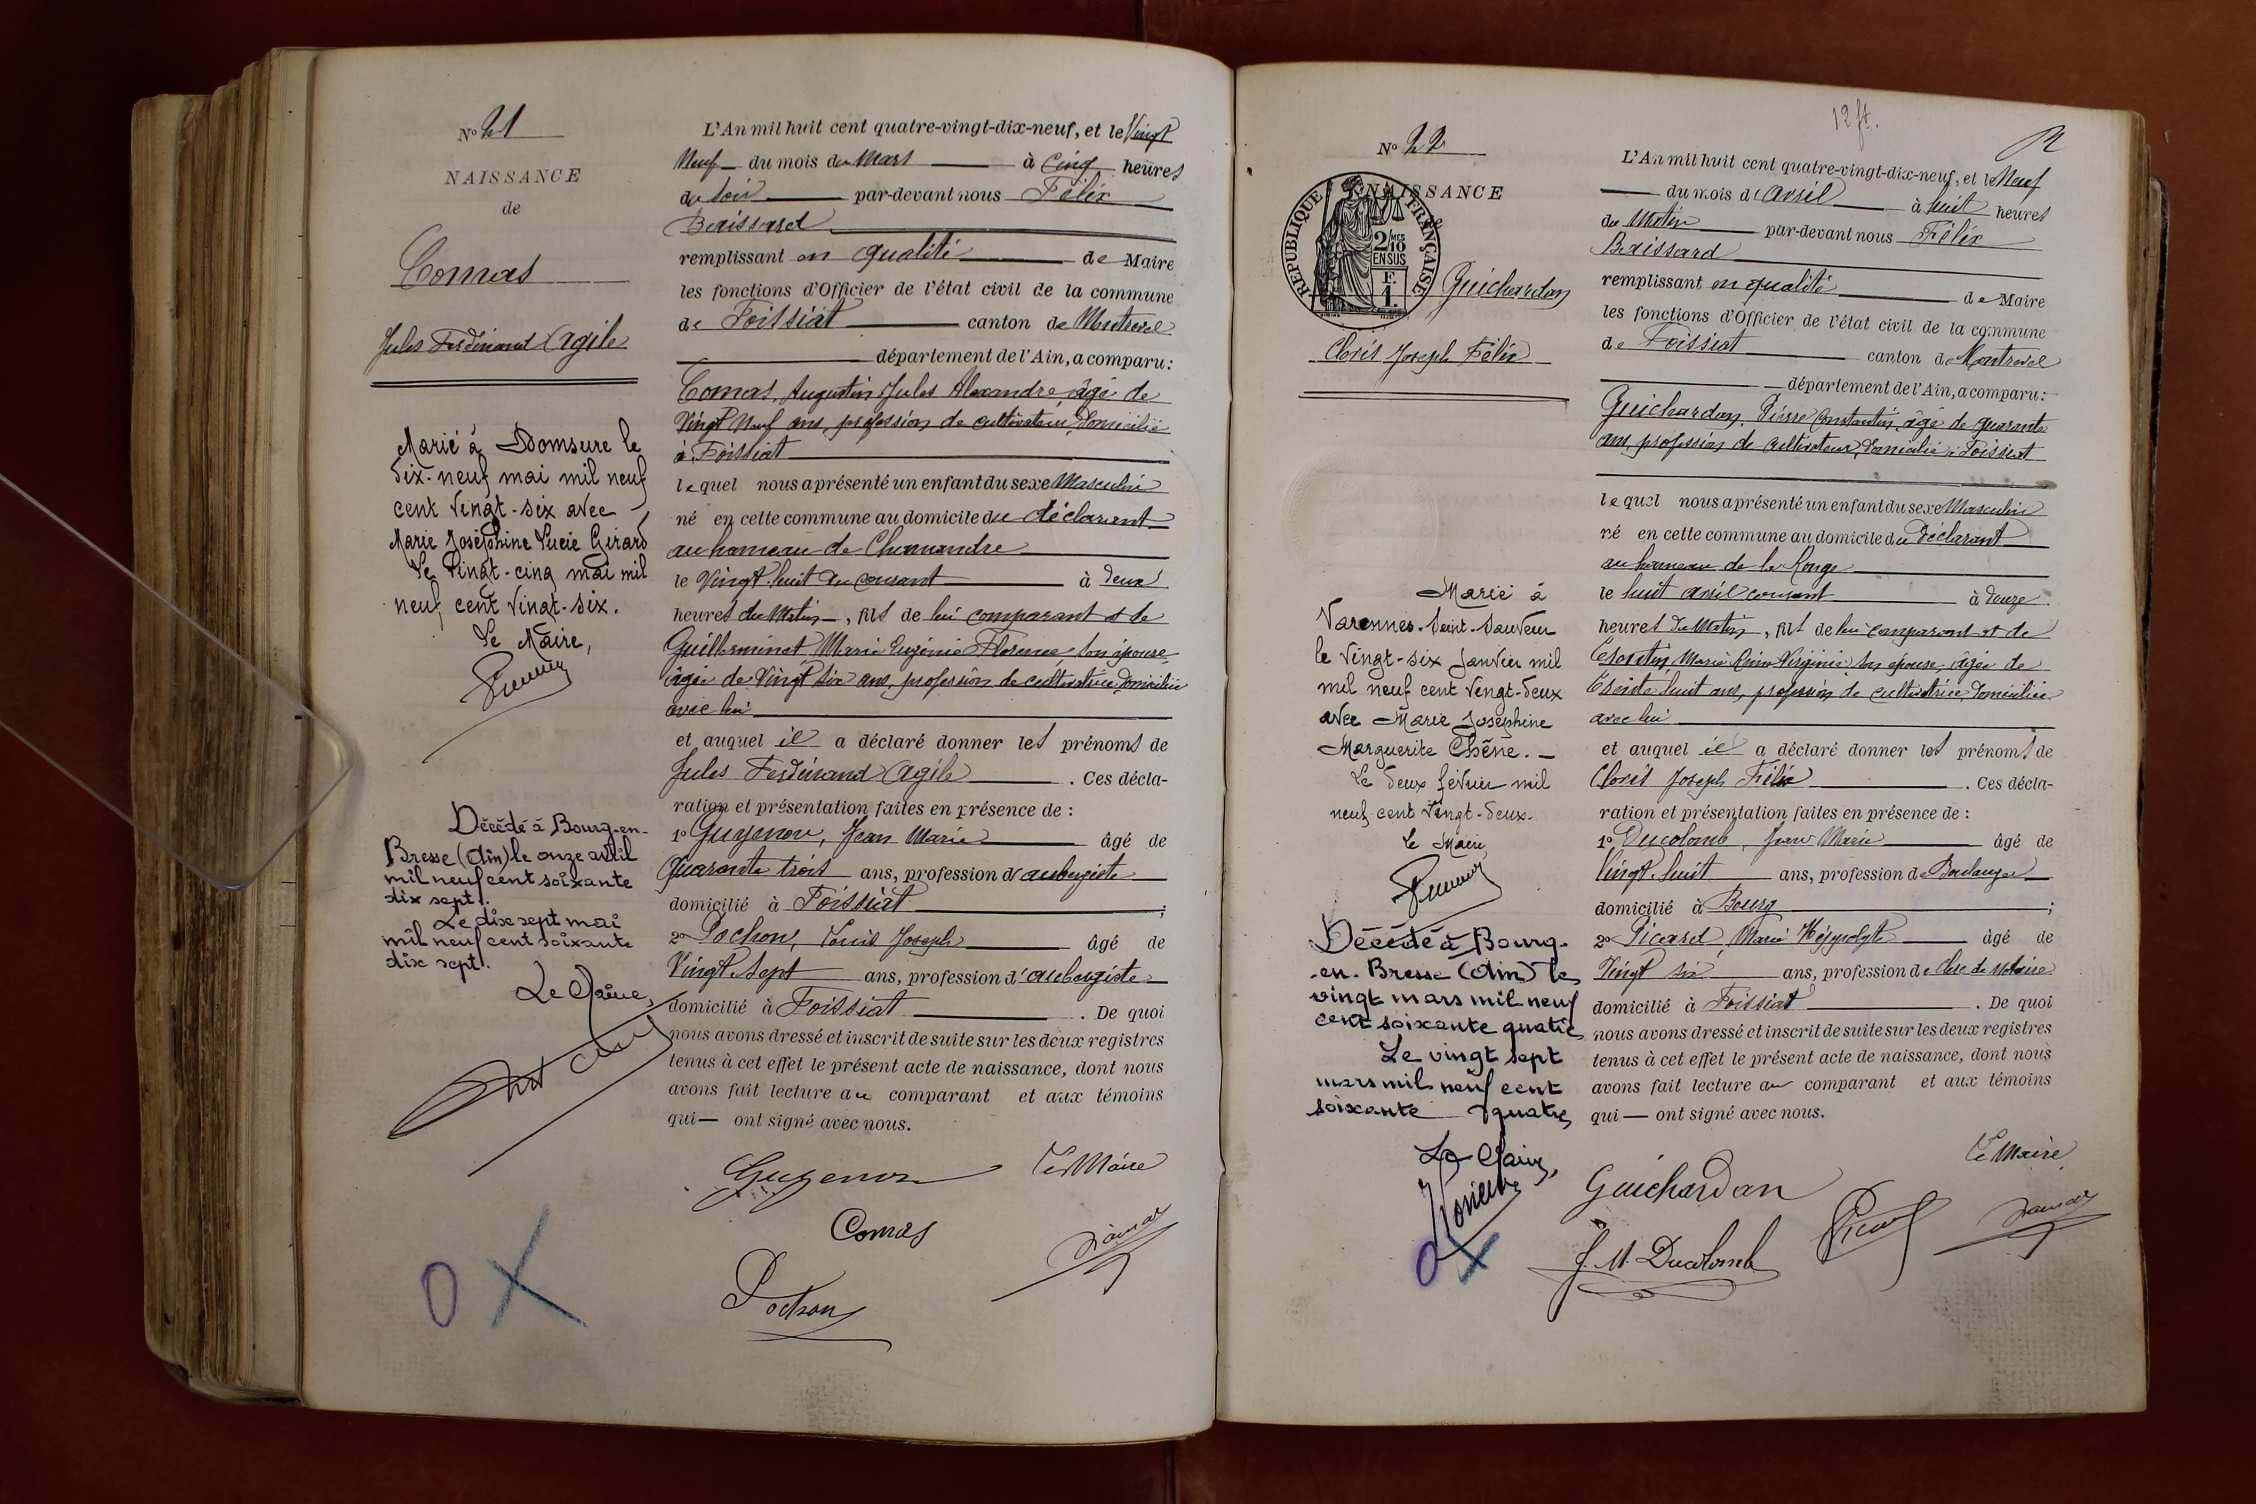 No 21
NAISSANCE
de
Comas
Jules Ferdinand Agile
Marié à Domsure le
dix-neuf mai mil neuf
cent vingt-six avec
Marie Joséphine Lucie Girard
Le vingt-cinq mai mil
neuf cent vingt-six.
Le Maire,
Décédé à Bourg-en-
Bresse (Ain) le onze avril
mil neuf cent soixante
dix sept.
Le dix sept mai
mil neuf cent soixante
dix sept.
Le Maire,
L'An mil huit cent quatre-vingt-dix-neuf, et le Vingt
Neuf du mois de Mars à Cinq heures
du soir par-devant nous Félix
Baissard
remplissant en qualité de Maire
les fonctions d'Officier de l'état civil de la commune
de Foissiat canton de Montrevel
département de l'Ain, a comparu:
Comas, Augustin Jules Alexandre, âgé de
Vingt Neuf ans, profession de cultivateur, domicilié
à Foissiat
lequel nous a présenté un enfant du sexe Masculin
né en cette commune au domicile du déclarant
au hameau de Chamandre
le Vingt huit du courant à deux
heures du Matin, fils de lui comparant et de
Guillerminet Marie Eugénie Florence son épouse
âgée de Vingt six ans, profession de cultivatrice, domiciliée
avec lui
et auquel il a déclaré donner les prénoms de
Jules Ferdinand Agile. Ces décla-
ration et présentation faites en présence de :
1o Guyenon, Jean Marie âgé de
Quarante trois ans, profession d'aubergiste
domicilié à Foissiat ;
2o Pochon, Louis Joseph âgé de
Vingt Sept ans, profession d'aubergiste
domicilié à Foissiat. De quoi
nous avons dressé et inscrit de suite sur les deux registres
tenus à cet effet le présent acte de naissance, dont nous
avons fait lecture au comparant et aux témoins
qui — ont signé avec nous.
Guyenon Le Maire
Comas
Pochon
O X
12 ft.
No 22
NAISSANCE
RÉPUBLIQUE FRANÇAISE
2/10 MES
EN SUS
F.
1.
Guichardan
Cloris Joseph Félix
Marié à
Varennes-Saint-Sauveur
le vingt-six Janvier mil
mil neuf cent vingt-deux
avec Marie Joséphine
Marguerite Chêne.
Le deux février mil
neuf cent vingt-deux.
Le Maire
Décédé à Bourg-
en-Bresse (Ain) le
vingt mars mil neuf
cent soixante quatre
Le vingt sept
mars mil neuf cent
soixante quatre
Le Maire,
O X
L'An mil huit cent quatre-vingt-dix-neuf, et le Neuf
du mois d'Avril à huit heures
du Matin par-devant nous Félix
Baissard
remplissant en qualité de Maire
les fonctions d'Officier de l'état civil de la commune
de Foissiat canton de Montrevel
département de l'Ain, a comparu:
Guichardan, Pierre Constantin, âgé de quarante
ans, profession de cultivateur, domicilié à Foissiat
lequel nous a présenté un enfant du sexe Masculin
né en cette commune au domicile du déclarant
au hameau de la Ronge
le huit avril courant à douze
heures du Matin, fils de lui comparant et de
Marie Virginie son épouse âgée de
trente huit ans, profession de cultivatrice, domiciliée
avec lui
et auquel il a déclaré donner les prénoms de
Cloris Joseph Félix. Ces décla-
ration et présentation faites en présence de :
1o Ducolomb, Jean Marie âgé de
Vingt huit ans, profession de Boulanger
domicilié à Bourg ;
2o Picard, Marie Hyppolyte âgé de
Vingt six ans, profession de clerc de Notaire
domicilié à Foissiat. De quoi
nous avons dressé et inscrit de suite sur les deux registres
tenus à cet effet le présent acte de naissance, dont nous
avons fait lecture au comparant et aux témoins
qui — ont signé avec nous.
Le Maire
Guichardan Picard
J. M. Ducolomb